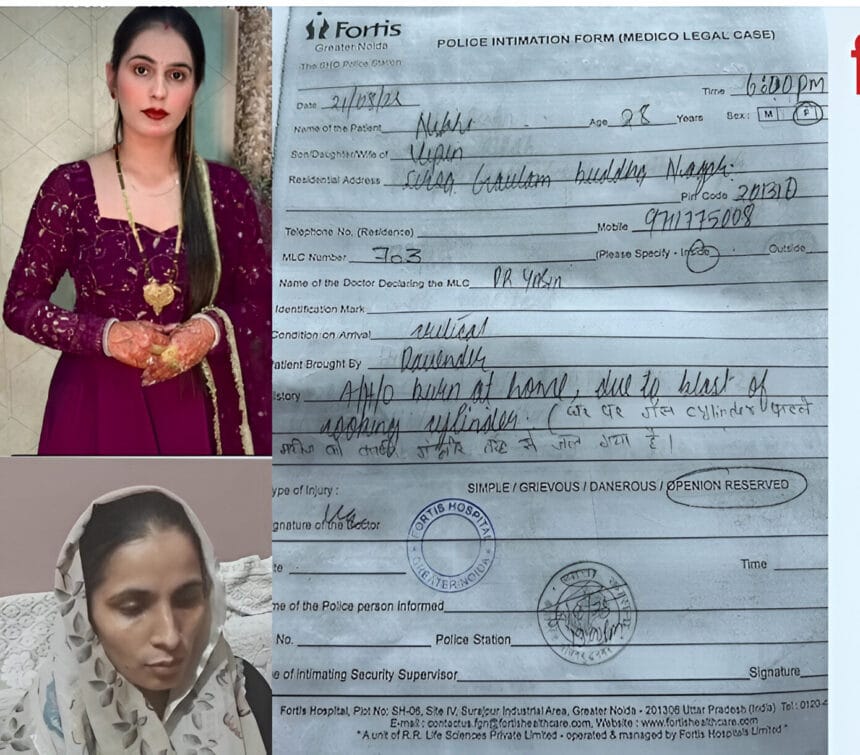 Fortis
Greater Noida
POLICE INTIMATION FORM (MEDICO LEGAL CASE)
The SHO Police Station
Date 21/08/25 Time 6:00 pm
Name of the Patient Nikki Age 28 Years Sex: M F
Son/Daughter/Wife of Vipin
Residential Address Sirsa Gautam buddha Nagar.
Pin Code 201310
Telephone No. (Residence) Mobile 9711775008
MLC Number 703 (Please Specify - Inside Outside
Name of the Doctor Declaring the MLC DR
Identification Mark
Condition on Arrival critical
atient Brought By Davender
istory A/H/O burn at home, due to blast of
cooking cylinder. (घर पर गैस cylinder फटने
मरीज की गंभीर तरह से जल गया है।
ype of Injury : SIMPLE / GRIEVOUS / DANEROUS / OPENION RESERVED
gnature of the Doctor
FORTIS HOSPITAL
GREATER NOIDA
te Time
ne of the Police person Informed
No. Police Station
e of intimating Security Supervisor Signature
Fortis Hospital, Plot No: SH-06, Site IV, Surajpur Industrial Area, Greater Noida - 201306 Uttar Pradesh (India) Tel : 0120-4
E-mail : contactus.fgn@fortishealthcare.com, Website : www.fortishealthcare.com
"A unit of R.R. Life Sciences Private Limited - operated & managed by Fortis Hospitals Limited"